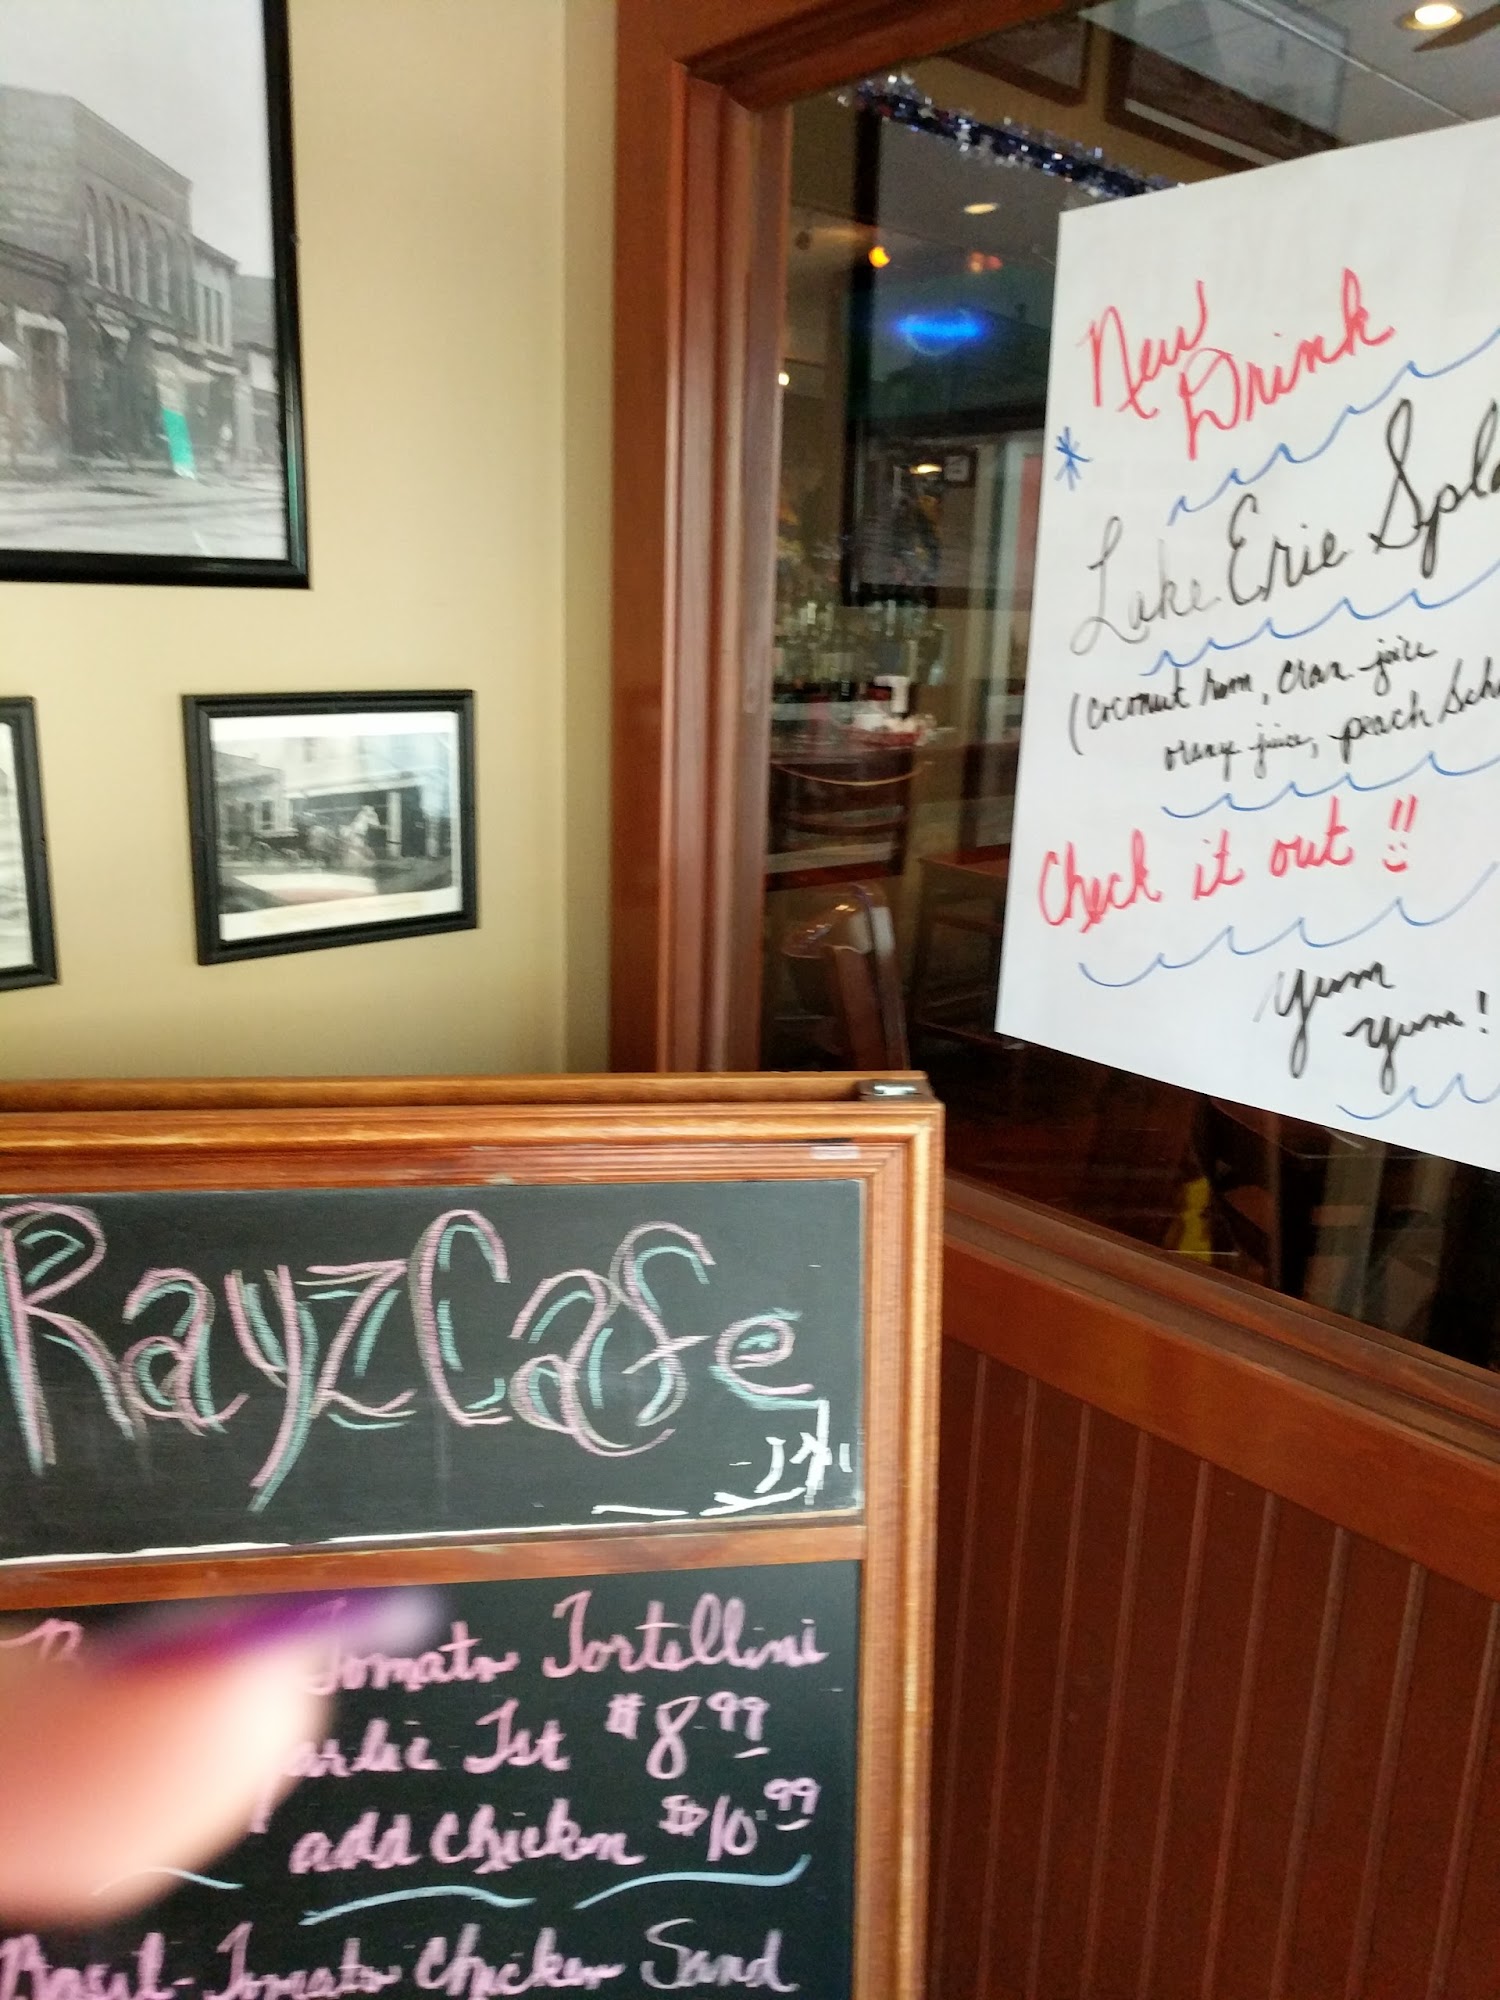 New
Drink
Lake Erie Spla
(coconut rum, cran. juice
orang juice, peach Sch
Check it out !!
Yum
Yum!
Rayz Cafe
Tomato Tortellini
arlic Tst $8.99
add chicken $10.99
Basil-Tomato Chicken Sand